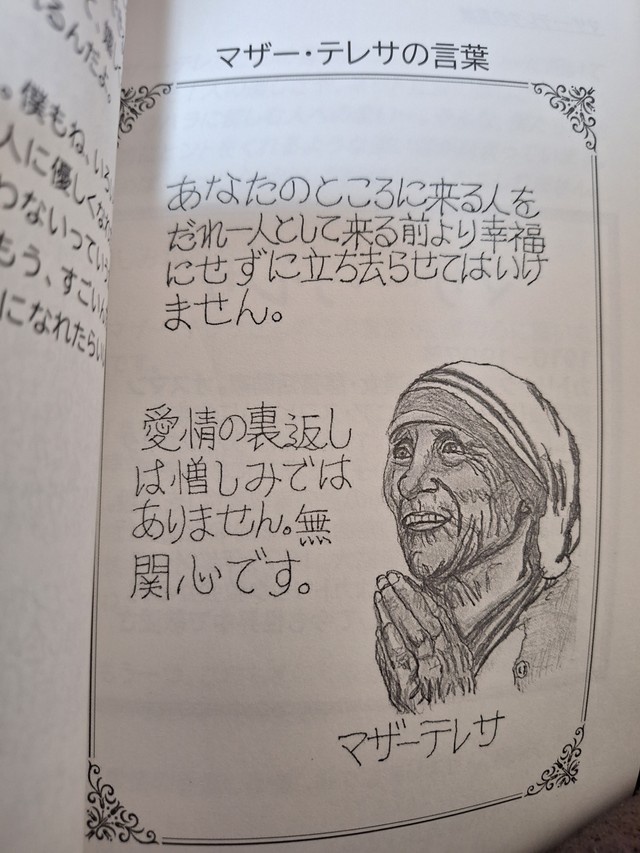 マザー・テレサの言葉
あなたのところに来る人を
だれ一人として来る前より幸福
にせずに立ち去らせてはいけ
ません。
愛情の裏返し
は憎しみでは
ありません。無
関心です。
マザーテレサ
るんだよ。
。僕もね、いろ
人に優しくなれ
わないってい
もう、すごい
になれたらい